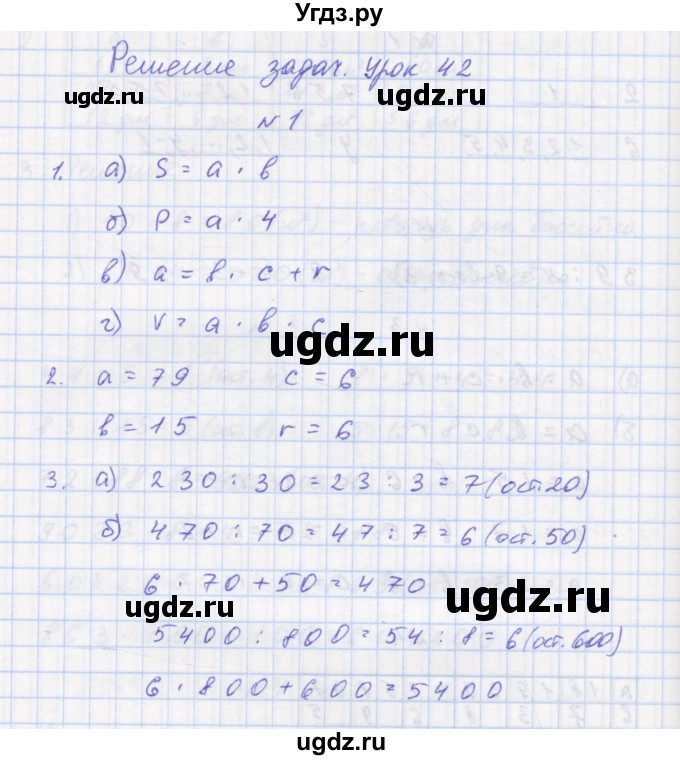 Угдз.ру
Решение задач. Урок 42
ugdz.ru ugdz.ru
№1
1. а) S = a · b
б) P = a · 4
в) a = b · c + r
г) V = a · b · c
ugdz.ru
2. a = 79 c = 6
b = 15 r = 6
3. а) 230 : 30 = 23 : 3 = 7 (ост. 20)
б) 470 : 70 = 47 : 7 = 6 (ост. 50)
6 · 70 + 50 = 470
ugdz.ru ugdz.ru
5400 : 800 = 54 : 8 = 6 (ост. 600)
6 · 800 + 600 = 5400
ugdz.ru